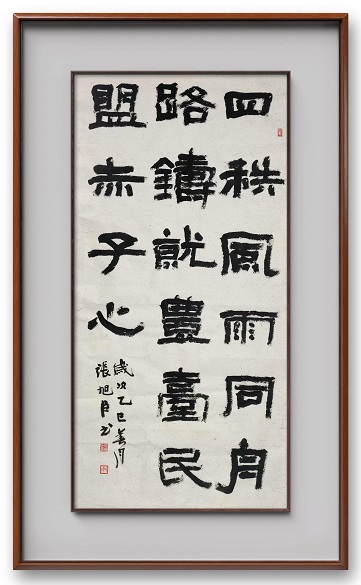 四秩風雨同舟
路鑄就豊臺民
盟赤子心
歲次乙巳月
張旭书